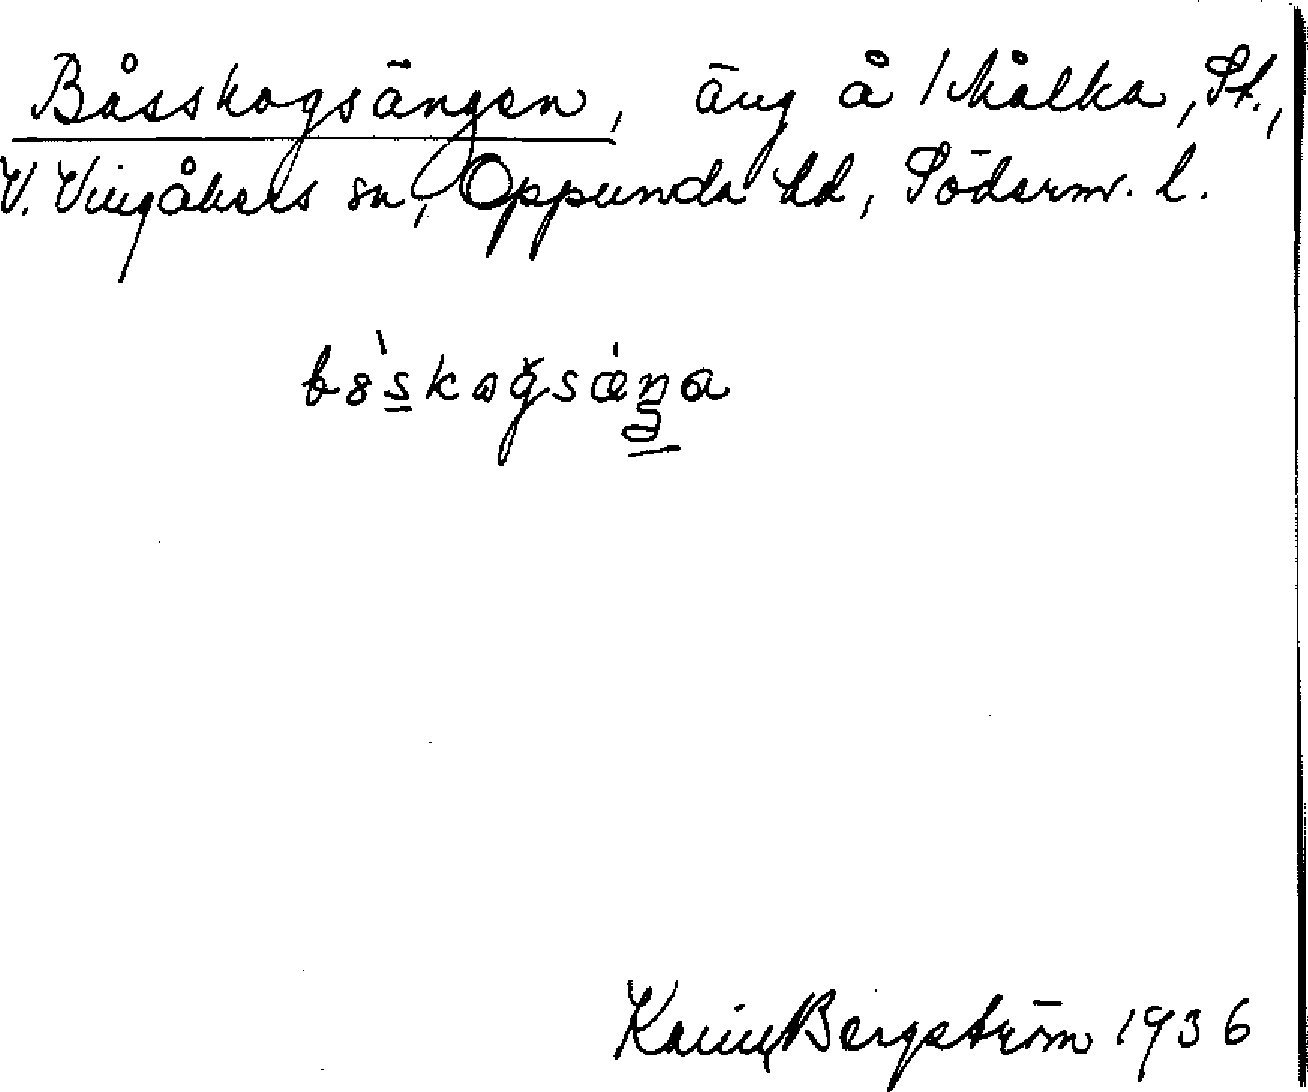 Båsskogsängen, äng å 1 Målka, St.,
V. Vingåkers sn, Oppunda hd, Söderm. l.
Karin Bergström 1936